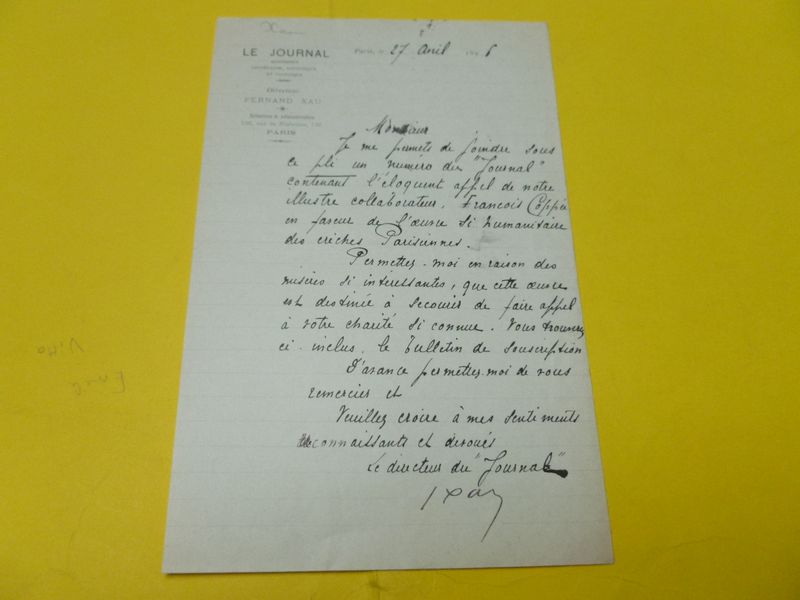 Xau
LE JOURNAL
QUOTIDIEN
LITTÉRAIRE, ARTISTIQUE
ET POLITIQUE
Directeur
FERNAND XAU
Rédaction & Administration
106, rue de Richelieu, 106
PARIS
Paris, le 27 Avril 6
Monsieur
Je me permets de joindre sous
ce pli un numéro du "Journal"
contenant l'éloquent appel de notre
illustre collaborateur, François Coppée
en faveur de l'œuvre si humanitaire
des crèches Parisiennes.
Permettez-moi en raison des
misères si intéressantes, que cette œuvre
est destinée à secourir de faire appel
à votre charité si connue. Vous trouverez
ci-inclus, le bulletin de souscription
D'avance permettez-moi de vous
remercier et
Veuillez croire à mes sentiments
reconnaissants et dévoués
Le directeur du "Journal"
Xau